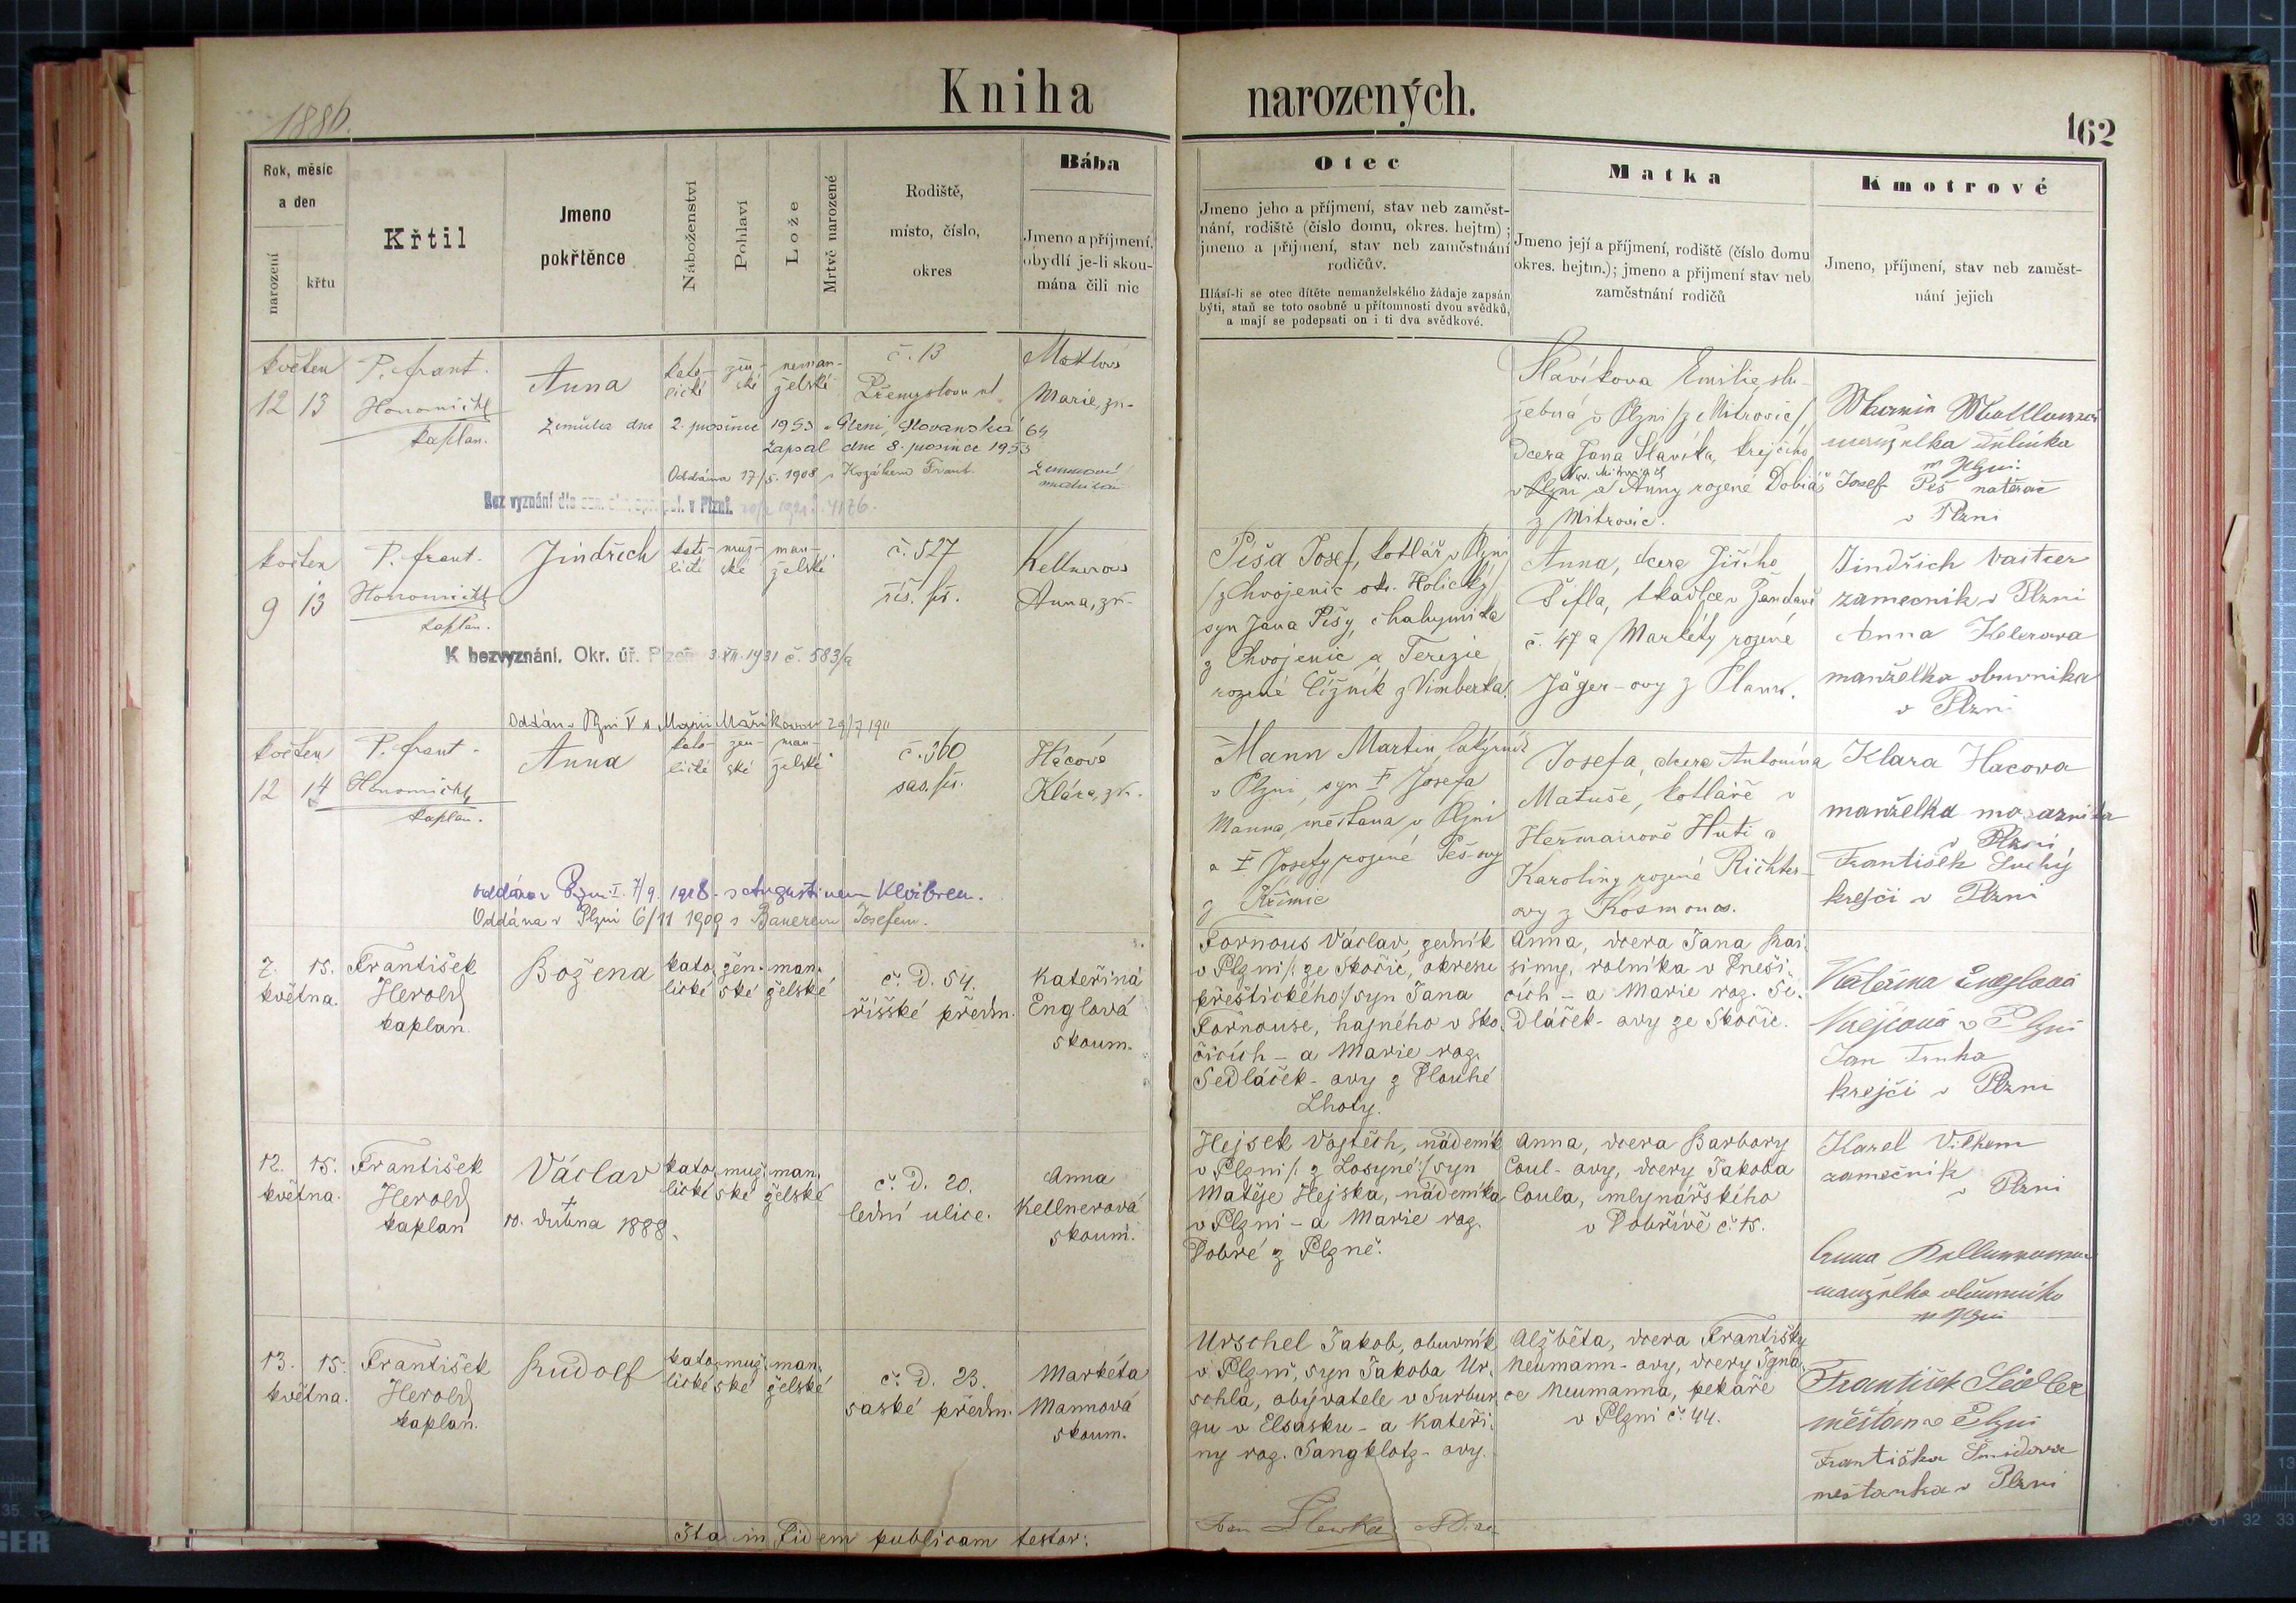 Kniha narozených.
1886.
162
Rok, měsíc
a den
narození
křtu
Křtil
Jmeno
pokřtěnce
Náboženství
Pohlaví
Lože
Mrtvě narozené
Rodiště,
místo, číslo,
okres
Bába
Jmeno a příjmení,
obydlí je-li skou-
mána čili nic
Otec
Jmeno jeho a příjmení, stav neb zaměst-
nání, rodiště (číslo domu, okres. hejtm) ;
jmeno a příjmení, stav neb zaměstnání
rodičův.
Hlásí-li se otec dítěte nemanželského žádaje zapsán
býti, staň se toto osobně u přítomnosti dvou svědků,
a mají se podepsati on i ti dva svědkové.
Matka
Jmeno její a příjmení, rodiště (číslo domu
okres. hejtm.); jmeno a příjmení stav neb
zaměstnání rodičů
Kmotrové
Jmeno, příjmení, stav neb zaměst-
nání jejich
květen
12 13
P. Frant.
Honomichl
kaplan.
Anna
kato-
lické
žen-
ské
neman-
želské
č. 13
Přemyslova ul.
Marie, zk.
Zemřela dne 2. prosince 1953 v Plzni, Slovanská 64
Zapsal dne 8. prosince 1953
Oddána 17/5. 1908 s Kozákem Frant.
Bez vyznání dle v Plzni.
Slavíkova Emilie, slu-
žebná v Plzni /z Mitrovic/
dcera Jana Slavíka, krejčího
v Plzni a Anny rozené Dobiáš
z Mitrovic.
manželka
Josef Peš natěrač
v Plzni
květen
9 13
P. Frant.
Honomichl
kaplan.
Jindřich
kato-
lické
muž-
ské
man-
želské
č. 527
říš. př.
Kellnerova
Anna, zk.
K bezvyznání. Okr. úř. Plzeň 3.XII.1931 č. 583/a
Oddán v Plzni V s Marií Maříkovou 29/7 1911
Píša Josef, kotlář v Plzni
/z Chvojenic okr. Holický/
syn Jana Píšy, chalupníka
z Chvojenic a Terezie
rozené Čížník z Vimberka.
Anna, dcera Jiřího
Šifla, tkadlce v Žandavě
č. 47 a Markéty rozené
Jäger-ovy z Plané.
Jindřich
zamecnik v Plzni
Anna Kelerova
manželka obuvnika
v Plzni
květen
12 14
P. Frant.
Honomichl
kaplan.
Anna
kato-
lické
žen-
ské
man-
želské
č. 360
sas. př.
Hácová
Klára, zk.
oddána v Plzni I. 7/9. 1918. s Augustinem
Oddána v Plzni 6/11 1909 s Bauerem Josefem.
Mann Martin
v Plzni, syn † Josefa
Manna, měšťana v Plzni
a † Josefy, rozené Peš-ovy
z Křimic
Josefa, dcera Antonína
Matuše, kotláře v
Heřmanově Huti a
Karoliny rozené Richter-
ovy z Kosmonos.
Klara Hacova
manželka
v Plzni
František Suchý
krejčí v Plzni
7. 15.
května.
František
Herold
kaplan
Božena
kato-
lické
žen-
ské
man-
želské
č. D. 54.
říšské předm.
Kateřina
Englová
skoum.
Fornous Václav, zedník
v Plzni /: ze Skočic, okresu
přeštického :/ syn Jana
Fornouse, hajného v Sko-
čicích - a Marie roz.
Sedláček-ovy z Dlouhé
Lhoty.
Anna, dcera Jana Kra-
simy, rolníka v Dneši-
cích - a Marie roz. Se-
dláček-ovy ze Skočic.
Kateřina Englová
Krejčová v Plzni
Jan Truha
krejčí v Plzni
12. 15.
května.
František
Herold
kaplan
Václav
†
10. dubna 1888.
kato-
lické
muž-
ské
man-
želské
č. D. 20.
lední ulice.
Anna
Kellnerová
skoum.
Hejsek Vojtěch, nádeník
v Plzni /: z Losyné :/ syn
Matěje Hejska, nádeníka
v Plzni - a Marie roz.
Dobré z Plzně.
Anna, dcera Barbory
Coul-ovy, dcery Jakoba
Coula, mlynářského
v Dobřívě č. 15.
Karel
zamečník
v Plzni
Anna Kellnerova
manželka obuvníka
v Plzni
13. 15.
května.
František
Herold
kaplan.
Rudolf
kato-
lické
muž-
ské
man-
želské
č. D. 23.
saské předm.
Markéta
Mannová
skoum.
Urschel Jakob, obuvník
v Plzni, syn Jakoba Ur-
schla, obývatele v Surbur-
gu v Elsasku - a Kateři-
ny roz. Sangklotz-ovy.
Alžběta, dcera Františky
Neumann-ovy, dcery Igná-
ce Neumanna, pekaře
v Plzni č. 44.
František Seidler
měšťan v Plzni
Františka Šmidova
mešťanka v Plzni
Ita in fidem publicam testor: